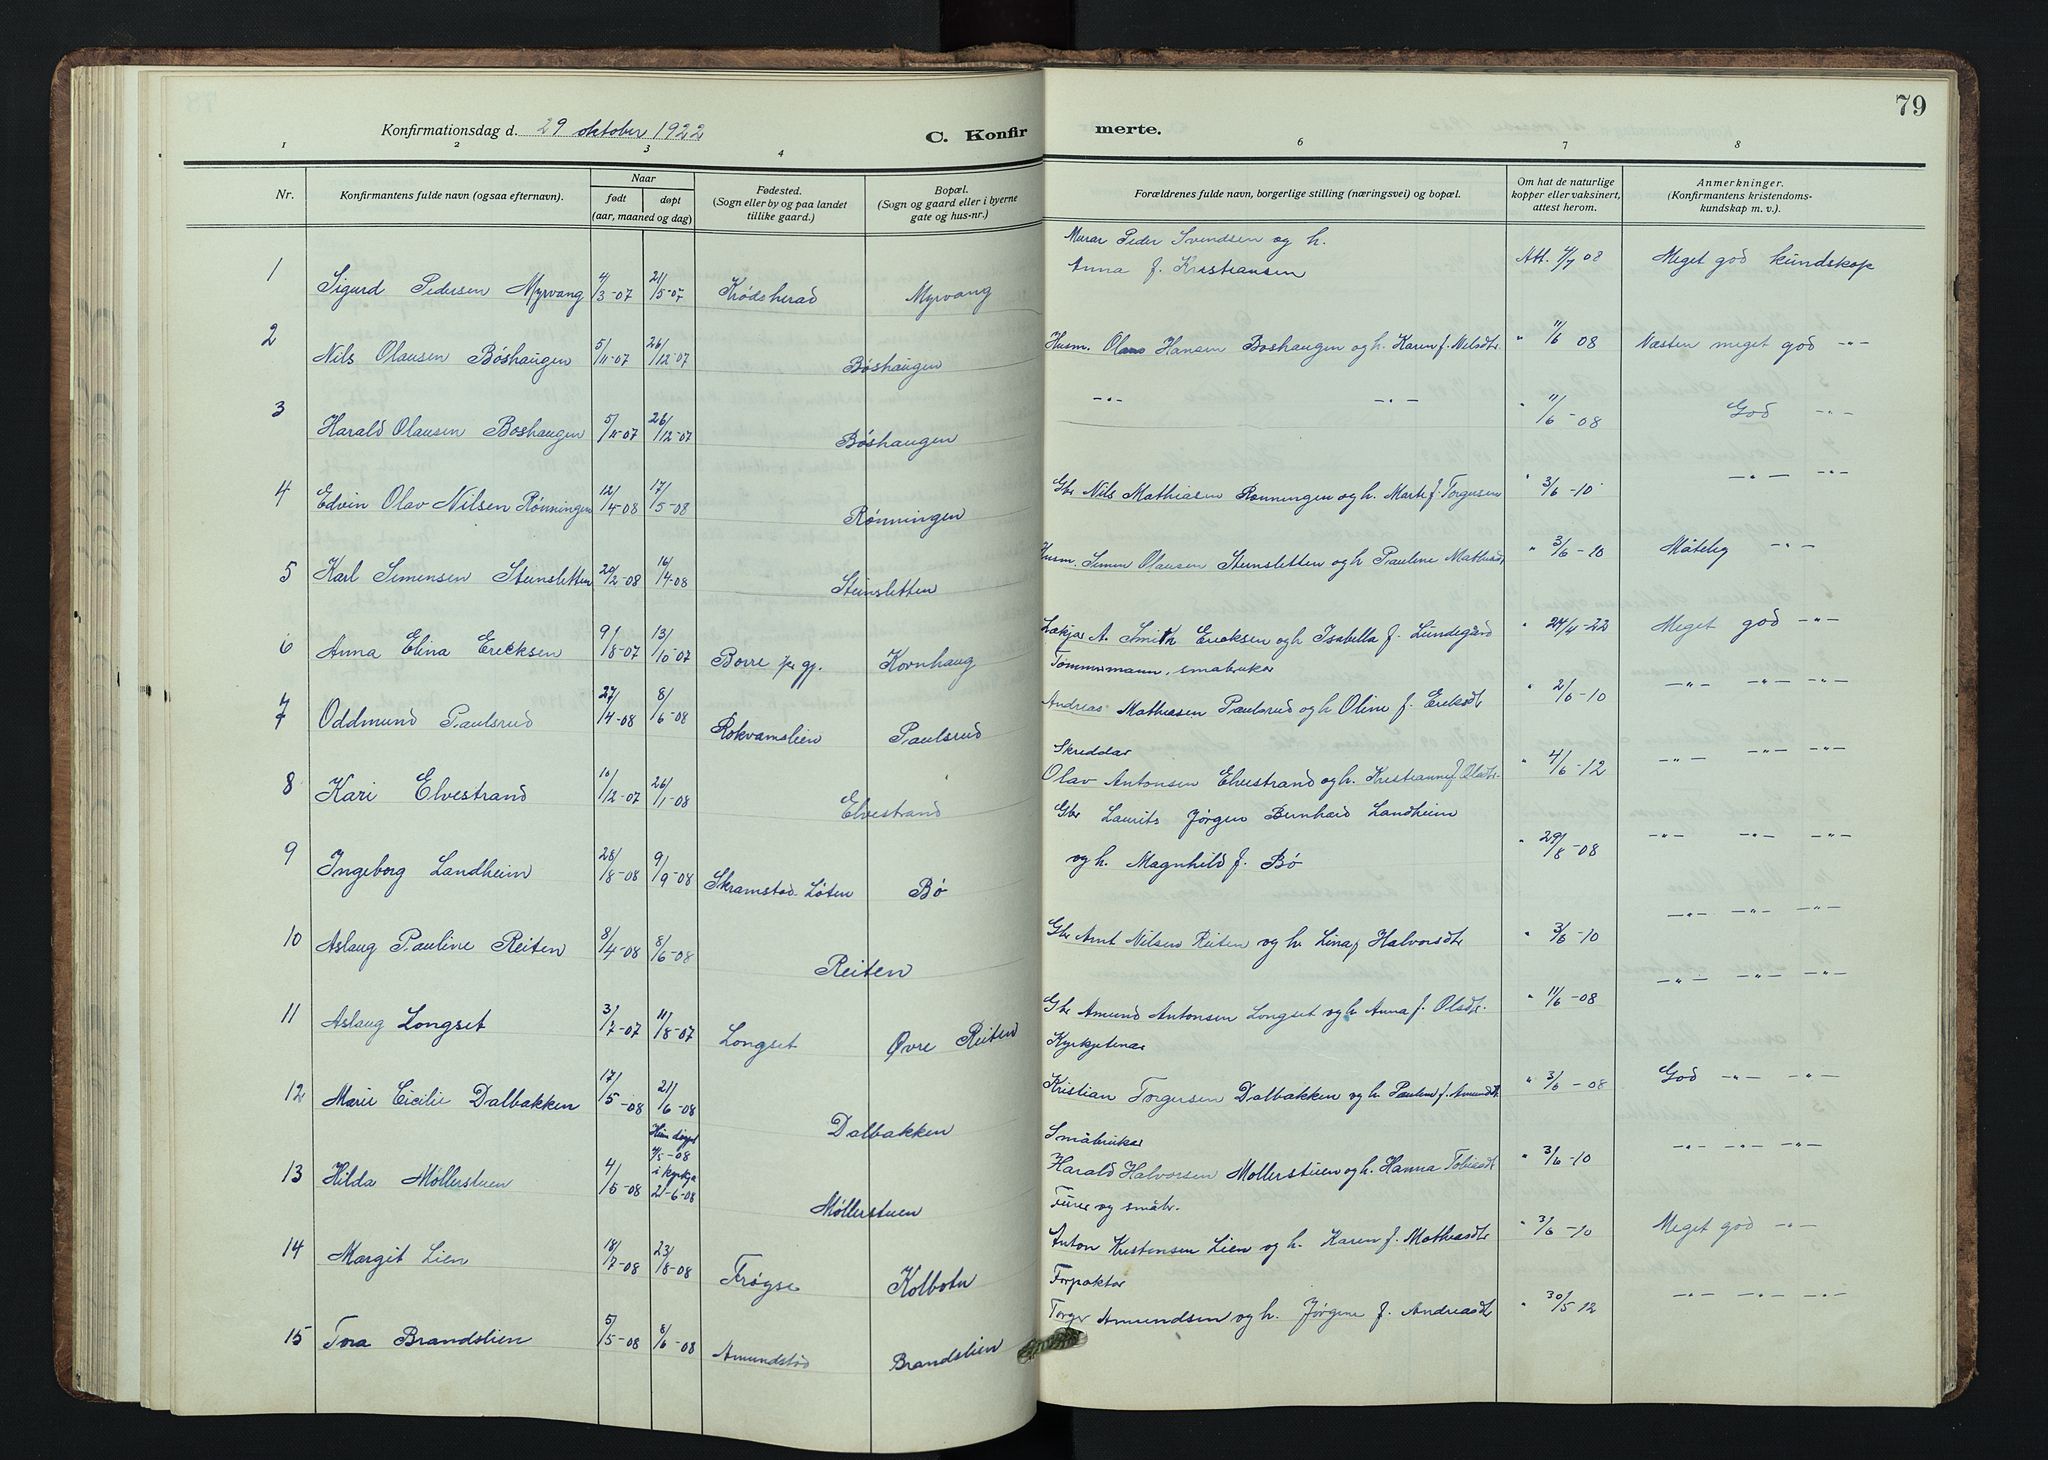 79
Konfirmationsdag d. 29 oktober 1922
C. Konfirmerte.
1 2 3 4 5 6 7 8
Nr.
Konfirmantens fulde navn (ogsaa efternavn).
Naar
født døpt
(aar, maaned og dag)
Fødested.
(Sogn eller by og paa landet
tillike gaard.)
Bopæl.
(Sogn og gaard eller i byerne
gate og hus-nr.)
Forældrenes fulde navn, borgerlige stilling (næringsvei) og bopæl.
Om hat de naturlige
kopper eller vaksinert,
attest herom.
Anmerkninger.
(Konfirmantens kristendoms-
kundskap m. v.).
Murar Peder Svendsen og h.
Anna f. Kristiansen
1 Sigurd Pedersen Myrvang 4/3-07 21/5-07 Krødsherad Myrvang Att. 4/7 08 Meget god kundskap
2 Nils Olausen Bøshaugen 5/11-07 26/12-07 Bøshaugen Husm. Olaus Hansen Boshaugen og h. Karen f. Nilsdtr. " 11/6 08 Næsten meget god -"-
3 Harald Olausen Boshaugen 5/11-07 26/12-07 Bøshaugen -"- -"- " 11/6-08 God -"-
4 Edvin Olav Nilsen Rønningen 12/4-08 17/5-08 Rønningen Gbr Nils Mathiasen Rønningen og h. Marte f. Torgersen " 3/6-10 -"- -"-
5 Karl Simensen Steinsletten 20/2-08 16/4-08 Steinsletten Husm. Simen Olausen Steinsletten og h Pauline Mathisdt " 3/6-10 Måteleg -"-
6 Anna Elina Ericksen 9/8-07 13/10-07 Borre pr gj. Kornhaug Lækjar A. Smith Ericksen og h Isabella f. Lundegård " 24/4-22 Meget god -"-
Tømmermann, småbrukar
7 Oddmund Paulsrud 27/4-08 8/6-08 Rokvamslien Paulsrud Andreas Mathiasen Paulsrud og h Oline f. Eriksdt " 2/6-10 -"- -"- -"-
Skreddar
8 Kari Elvestrand 10/12-07 26/1-08 Elvestrand Olav Antonsen Elvestrand og h. Kristianne f. Olsdtr. " 4/6-12 -"- -"- -"-
Gbr Laurits Jørgen Bernhard Landheim
9 Ingeborg Landheim 28/8-08 9/9-08 Skramstad Løten Bø og h. Magnhild f. Bø " 29/8-08 -"- -"- -"-
10 Aslaug Pauline Reiten 8/4-08 8/6-08 Reiten Gbr Arnt Nilsen Reiten og h Lina f Halvorsdtr " 3/6-10 -"- -"- -"-
11 Aslaug Longset 3/7-07 11/8-07 Longset Øvre Reiten Gbr Amund Antonsen Longset og h Anna f. Olsdtr. " 11/6-08 -"- -"- -"-
Kyrkjetenar
12 Marie Cicilie Dalbakken 17/5-08 21/6-08 Dalbakken Kristian Torgersen Dalbakken og h. Pauline f. Amundt " 3/6-08 God -"- -"-
Småbrukar
13 Hilda Møllerstuen 4/5-08 Heimdøypt 4/5-08 i kyrkja 21-6-08 Møllerstuen Harald Halvorsen Møllerstuen og h. Hanna Tobiasdt " 3/6-10 -"- -"- -"-
og småbr.
14 Margit Lien 18/7-08 23/8-08 Frøyse Kolbotn Anton Kristensen Lien og h. Karen f. Mathiasdtr " 3/6-10 Meget god -"-
Forpaktar
15 Tora Brandslien 5/5-08 8/6-08 Amundstad Brandslien Torger Amundsen og h. Jørgine f. Andreasdtr " 30/5 12 -"- -"- -"-